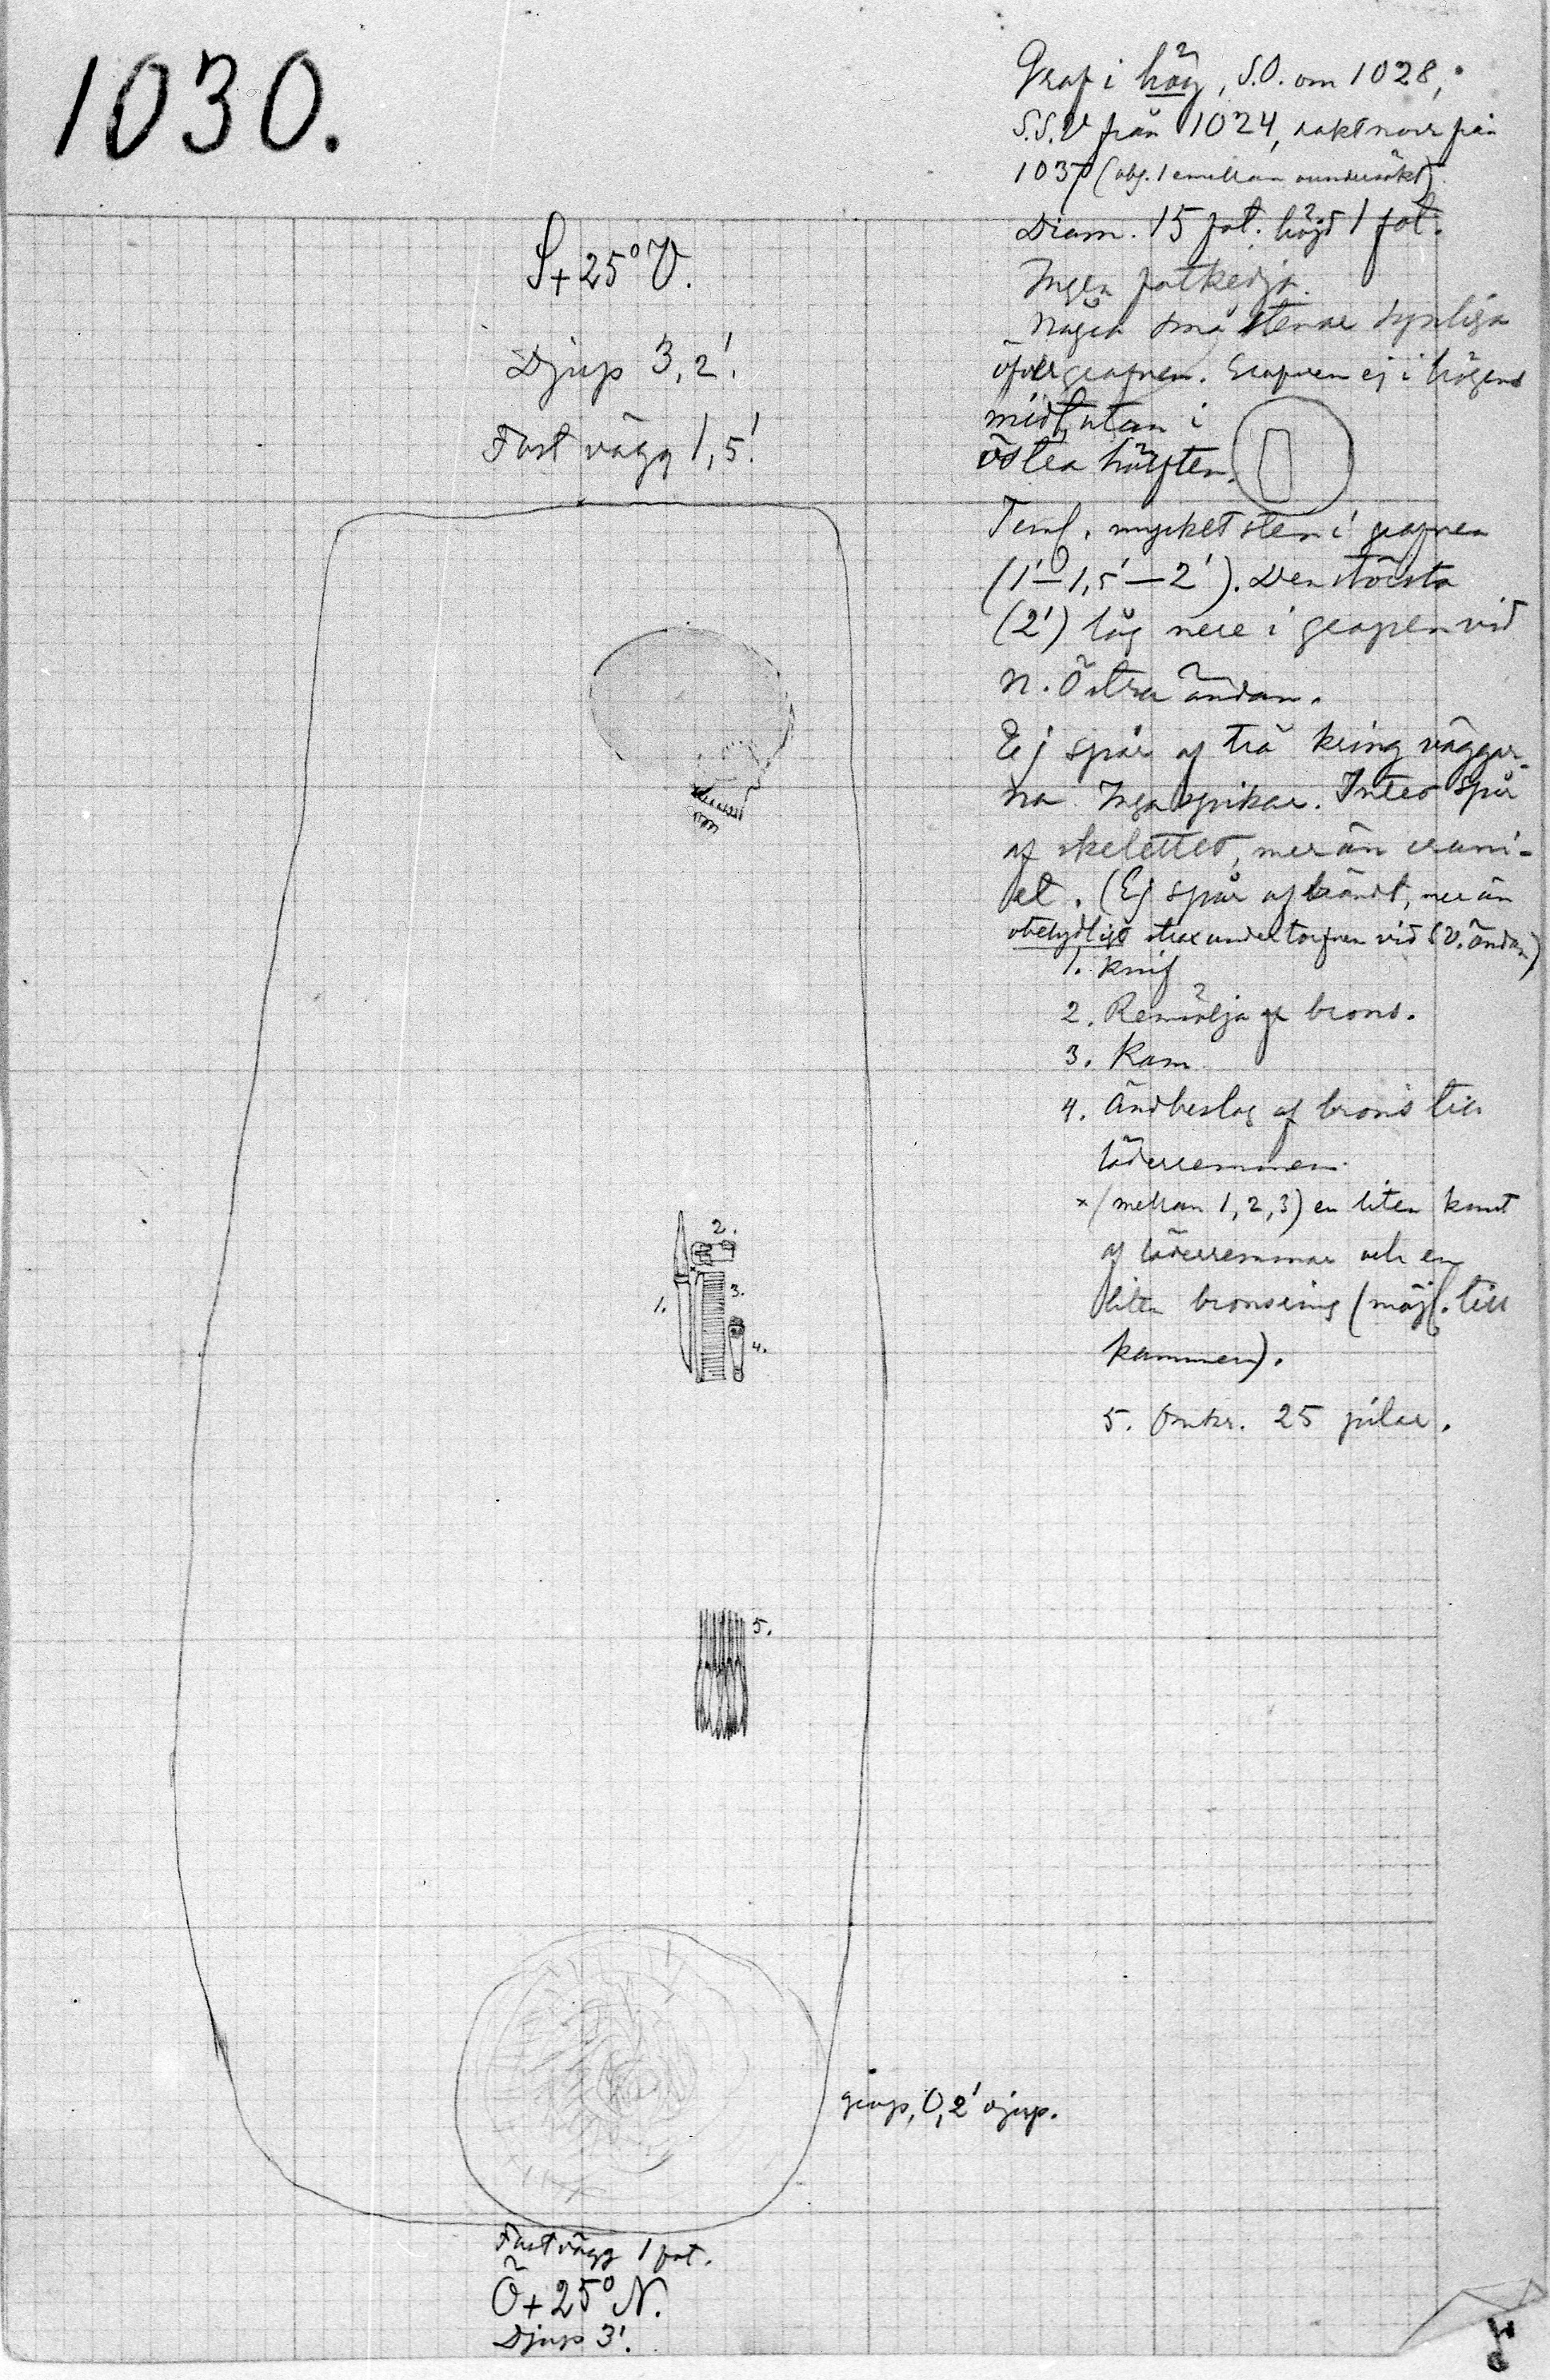 1030.
S+25° V.
Djup 3,2'.
Fast vägg 1,5'.
Graf i hög, S.O. om 1028,
S.S.V från 1024, rakt norr från
1037 (obs. 1 emellan oundersökt).
Diam. 15 fot. höjd 1 fot.
Ingen fotkedja.
Några små stenar synliga
öfver grafven. Grafven ej i högens
midt, utan i
östra hälften.
Teml. mycket sten i grafven
(1'—1,5'—2'). Den största
(2') låg nere i grafven vid
N. Östra ändan.
Ej spår af trä kring väggar-
na. Inga spikar. Intet spår
af skelettet, mer än crani-
et. (Ej spår af brändt, mer än
obetydligt strax under torfven vid S.V. ändan)
1. Knif
2. Remsölja af brons.
3. Kam
4. Ändbeslag af brons till
läderremmen.
× (mellan 1, 2, 3) en liten knut
af läderremmar och en
liten bronsring (möjl. till
kammen).
5. Omkr. 25 pilar.
2.
1.
3.
4.
5.
grop, 0,2' djup.
Fast vägg 1 fot.
Ö+25° N.
Djup 3'.